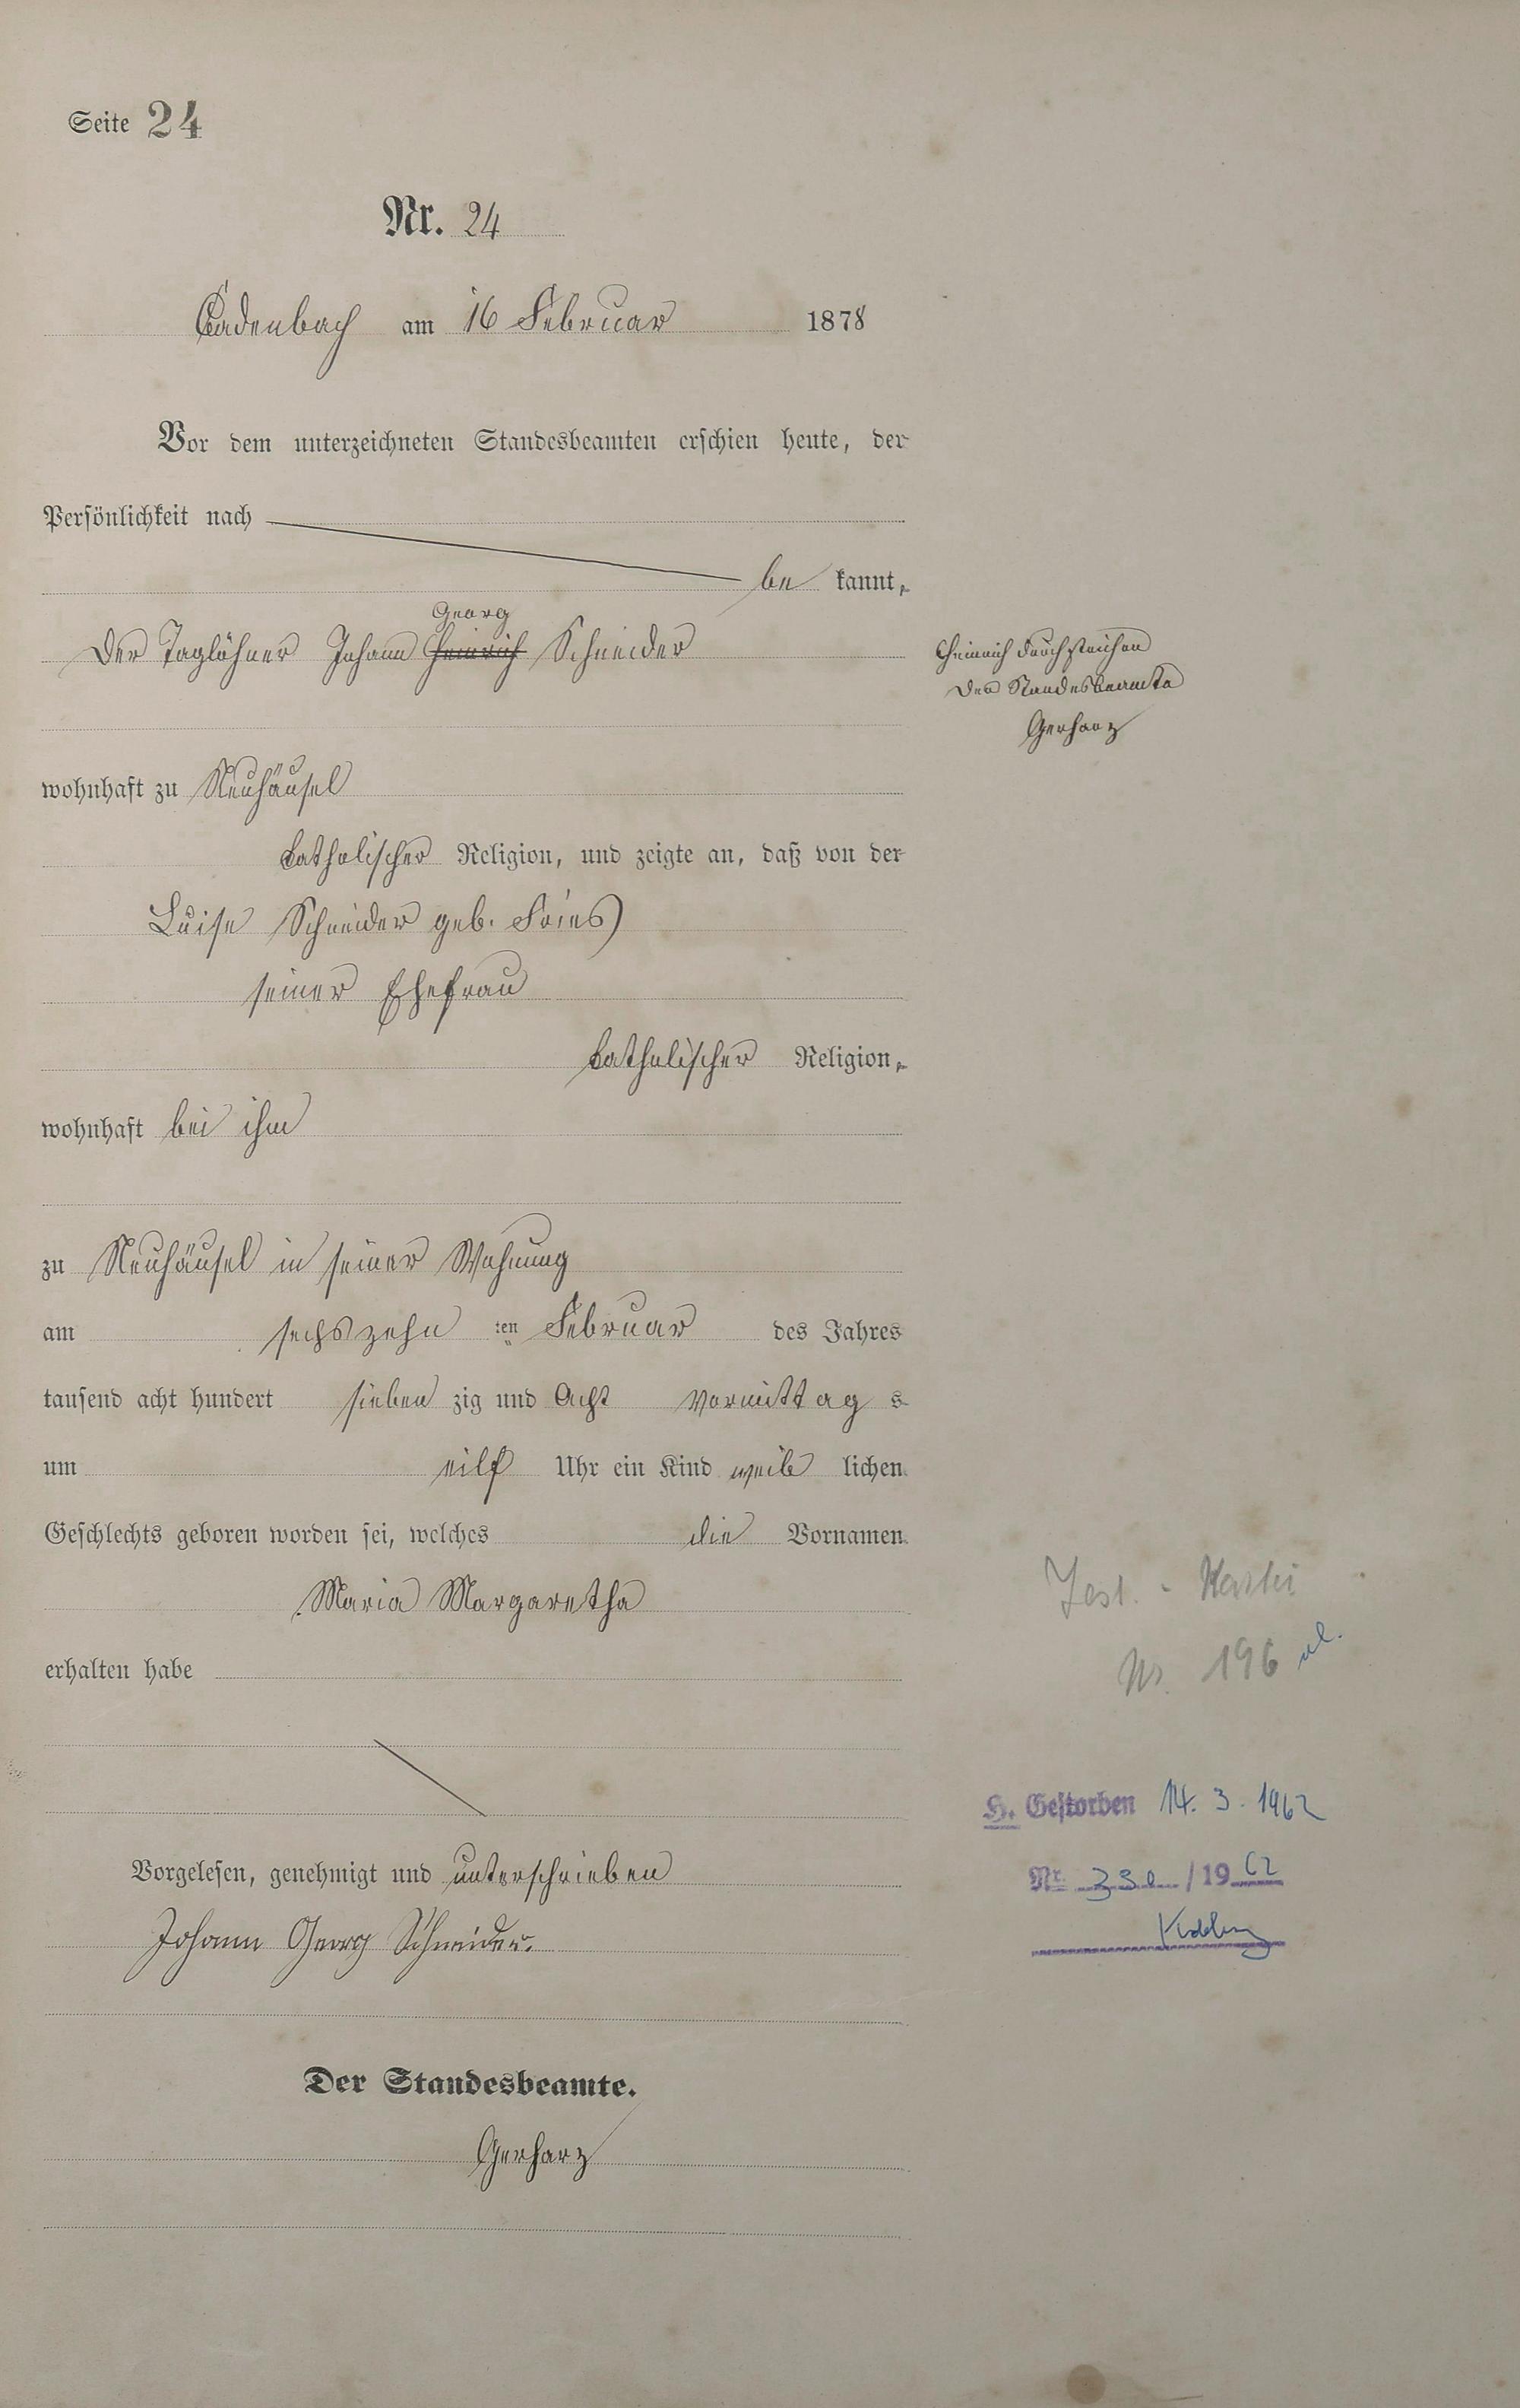 Seite 24
Nr. 24
Cadenbach am 16 Februar 1878
Vor dem unterzeichneten Standesbeamten erschien heute, der
Persönlichkeit nach
be kannt,
Georg
Der Taglöhner Johann Heinrich Schneider
Heinrich durchstrichen
Der Standesbeamte
Gerharz
wohnhaft zu Neuhäusel
katholischer Religion, und zeigte an, daß von der
Luise Schneider geb. Fries
seiner Ehefrau
katholischer Religion,
wohnhaft bei ihm
zu Neuhäusel in seiner Wohnung
am sechszehn ten Februar des Jahres
tausend acht hundert sieben zig und Acht Vormittag s
um eilf Uhr ein Kind weib lichen
Geschlechts geboren worden sei, welches die Vornamen
Maria Margaretha
erhalten habe
Nr. 196
H. Gestorben 14. 3. 1962
Vorgelesen, genehmigt und unterschrieben
Nr. /1962
Johann Georg Schneider.
Der Standesbeamte.
Gerharz